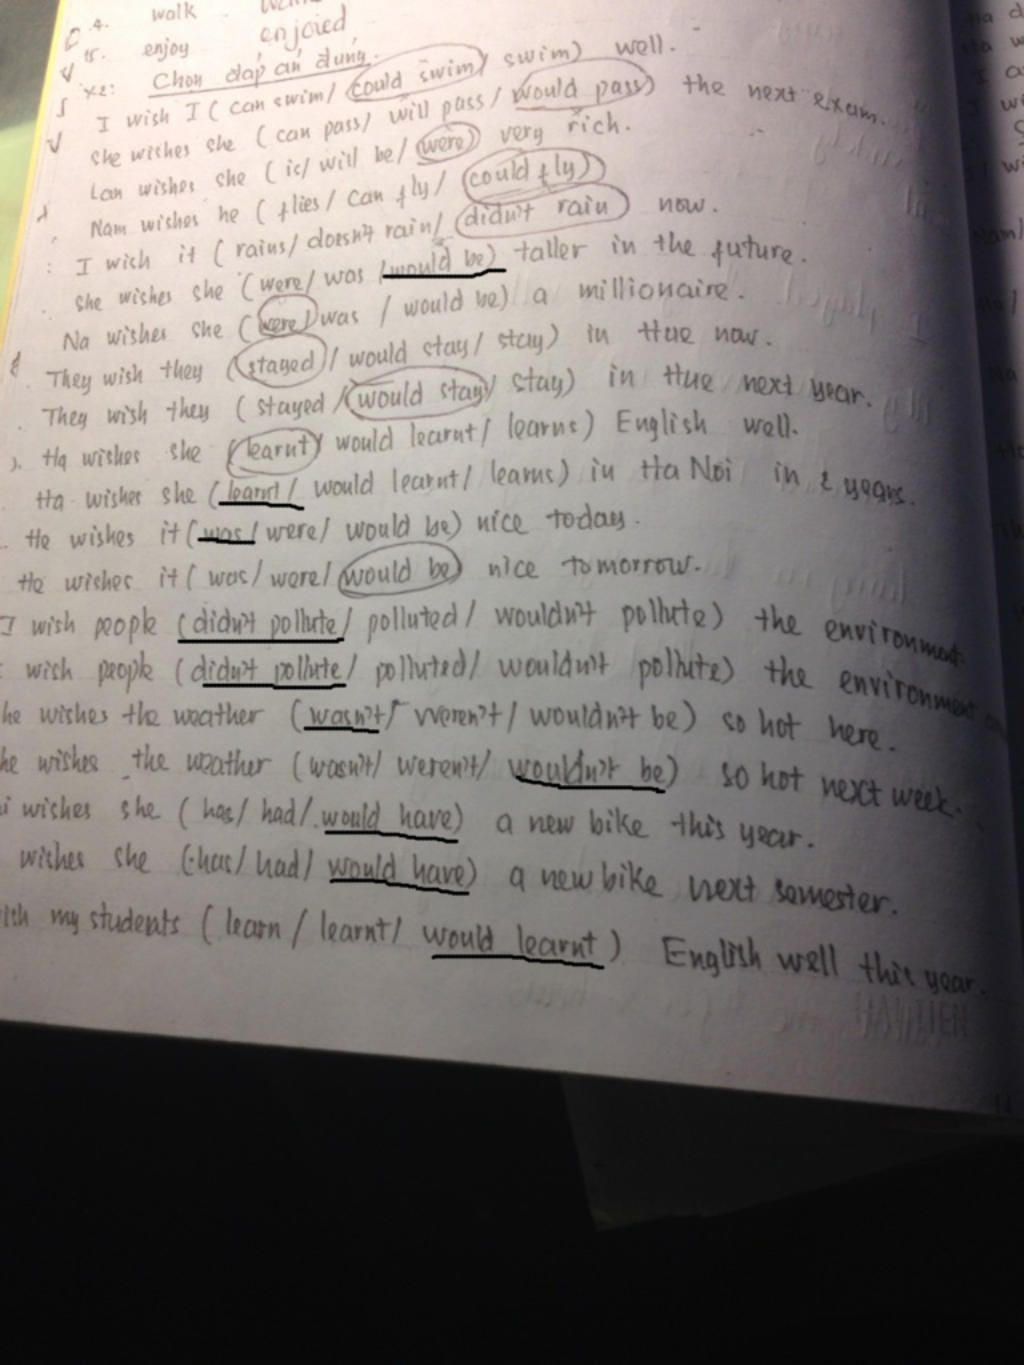 4. walk
15. enjoy enjoied
x2: Chọn đáp án đúng.
I wish I ( can swim/ could swim/ swim) well.
She wishes she ( can pass/ will pass/ would pass) the next exam.
Lan wishes she ( is/ will be/ were) very rich.
Nam wishes he ( flies/ can fly/ could fly)
I wish it ( rains/ doesn't rain/ didn't rain now.
She wishes she (were/ was /would be) taller in the future.
Na wishes she (were/ was / would be) a millionaire.
They wish they (stayed / would stay/ stay) in Hue now.
They wish they ( stayed / would stay/ stay) in Hue next year.
). Ha wishes she (learnt/ would learnt/ learns) English well.
Ha wishes she (learnt/ would learnt/ learns) in Ha Noi in 2 years.
He wishes it (was/ were/ would be) nice today.
He wishes it ( was/ were/ would be) nice tomorrow.
I wish people (didn't pollute/ polluted/ wouldn't pollute) the environment.
wish people (didn't pollute/ polluted/ wouldn't pollute) the environment
he wishes the weather (wasn't/ weren't/ wouldn't be) so hot here.
he wishes the weather (wasn't/ weren't/ wouldn't be) so hot next week.
i wishes she ( has/ had/ would have) a new bike this year.
wishes she (has/ had/ would have) a new bike next semester.
ish my students ( learn / learnt/ would learnt ) English well this year.